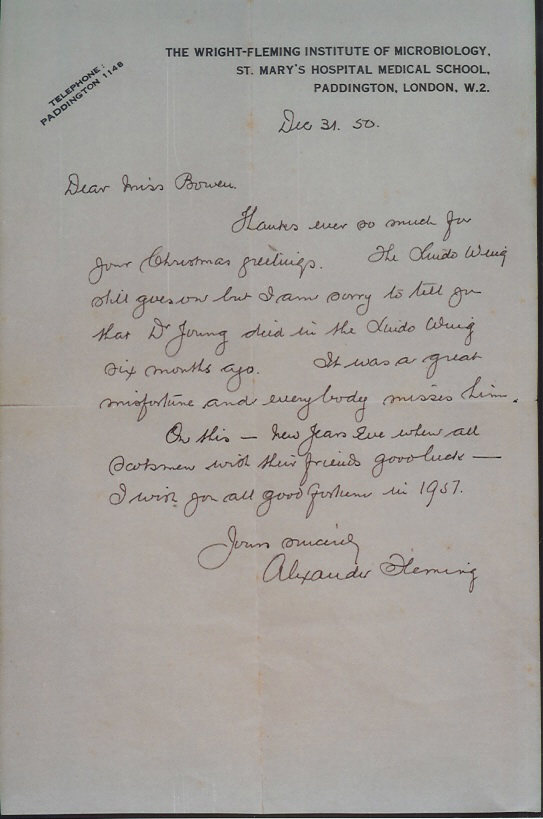 TELEPHONE:
PADDINGTON 1148
THE WRIGHT-FLEMING INSTITUTE OF MICROBIOLOGY,
ST. MARY'S HOSPITAL MEDICAL SCHOOL,
PADDINGTON, LONDON, W.2.
Dec 31. 50.
Dear Miss Bowen.
Thanks ever so much for
your Christmas greetings. The Lindo Wing
still goes on but I am sorry to tell you
that Dr Young died in the Lindo Wing
six months ago. It was a great
misfortune and everybody misses him.
On this — New Years Eve when all
Scotsmen wish their friends good luck —
I wish you all good fortune in 1951.
Yours sincerely
Alexander Fleming